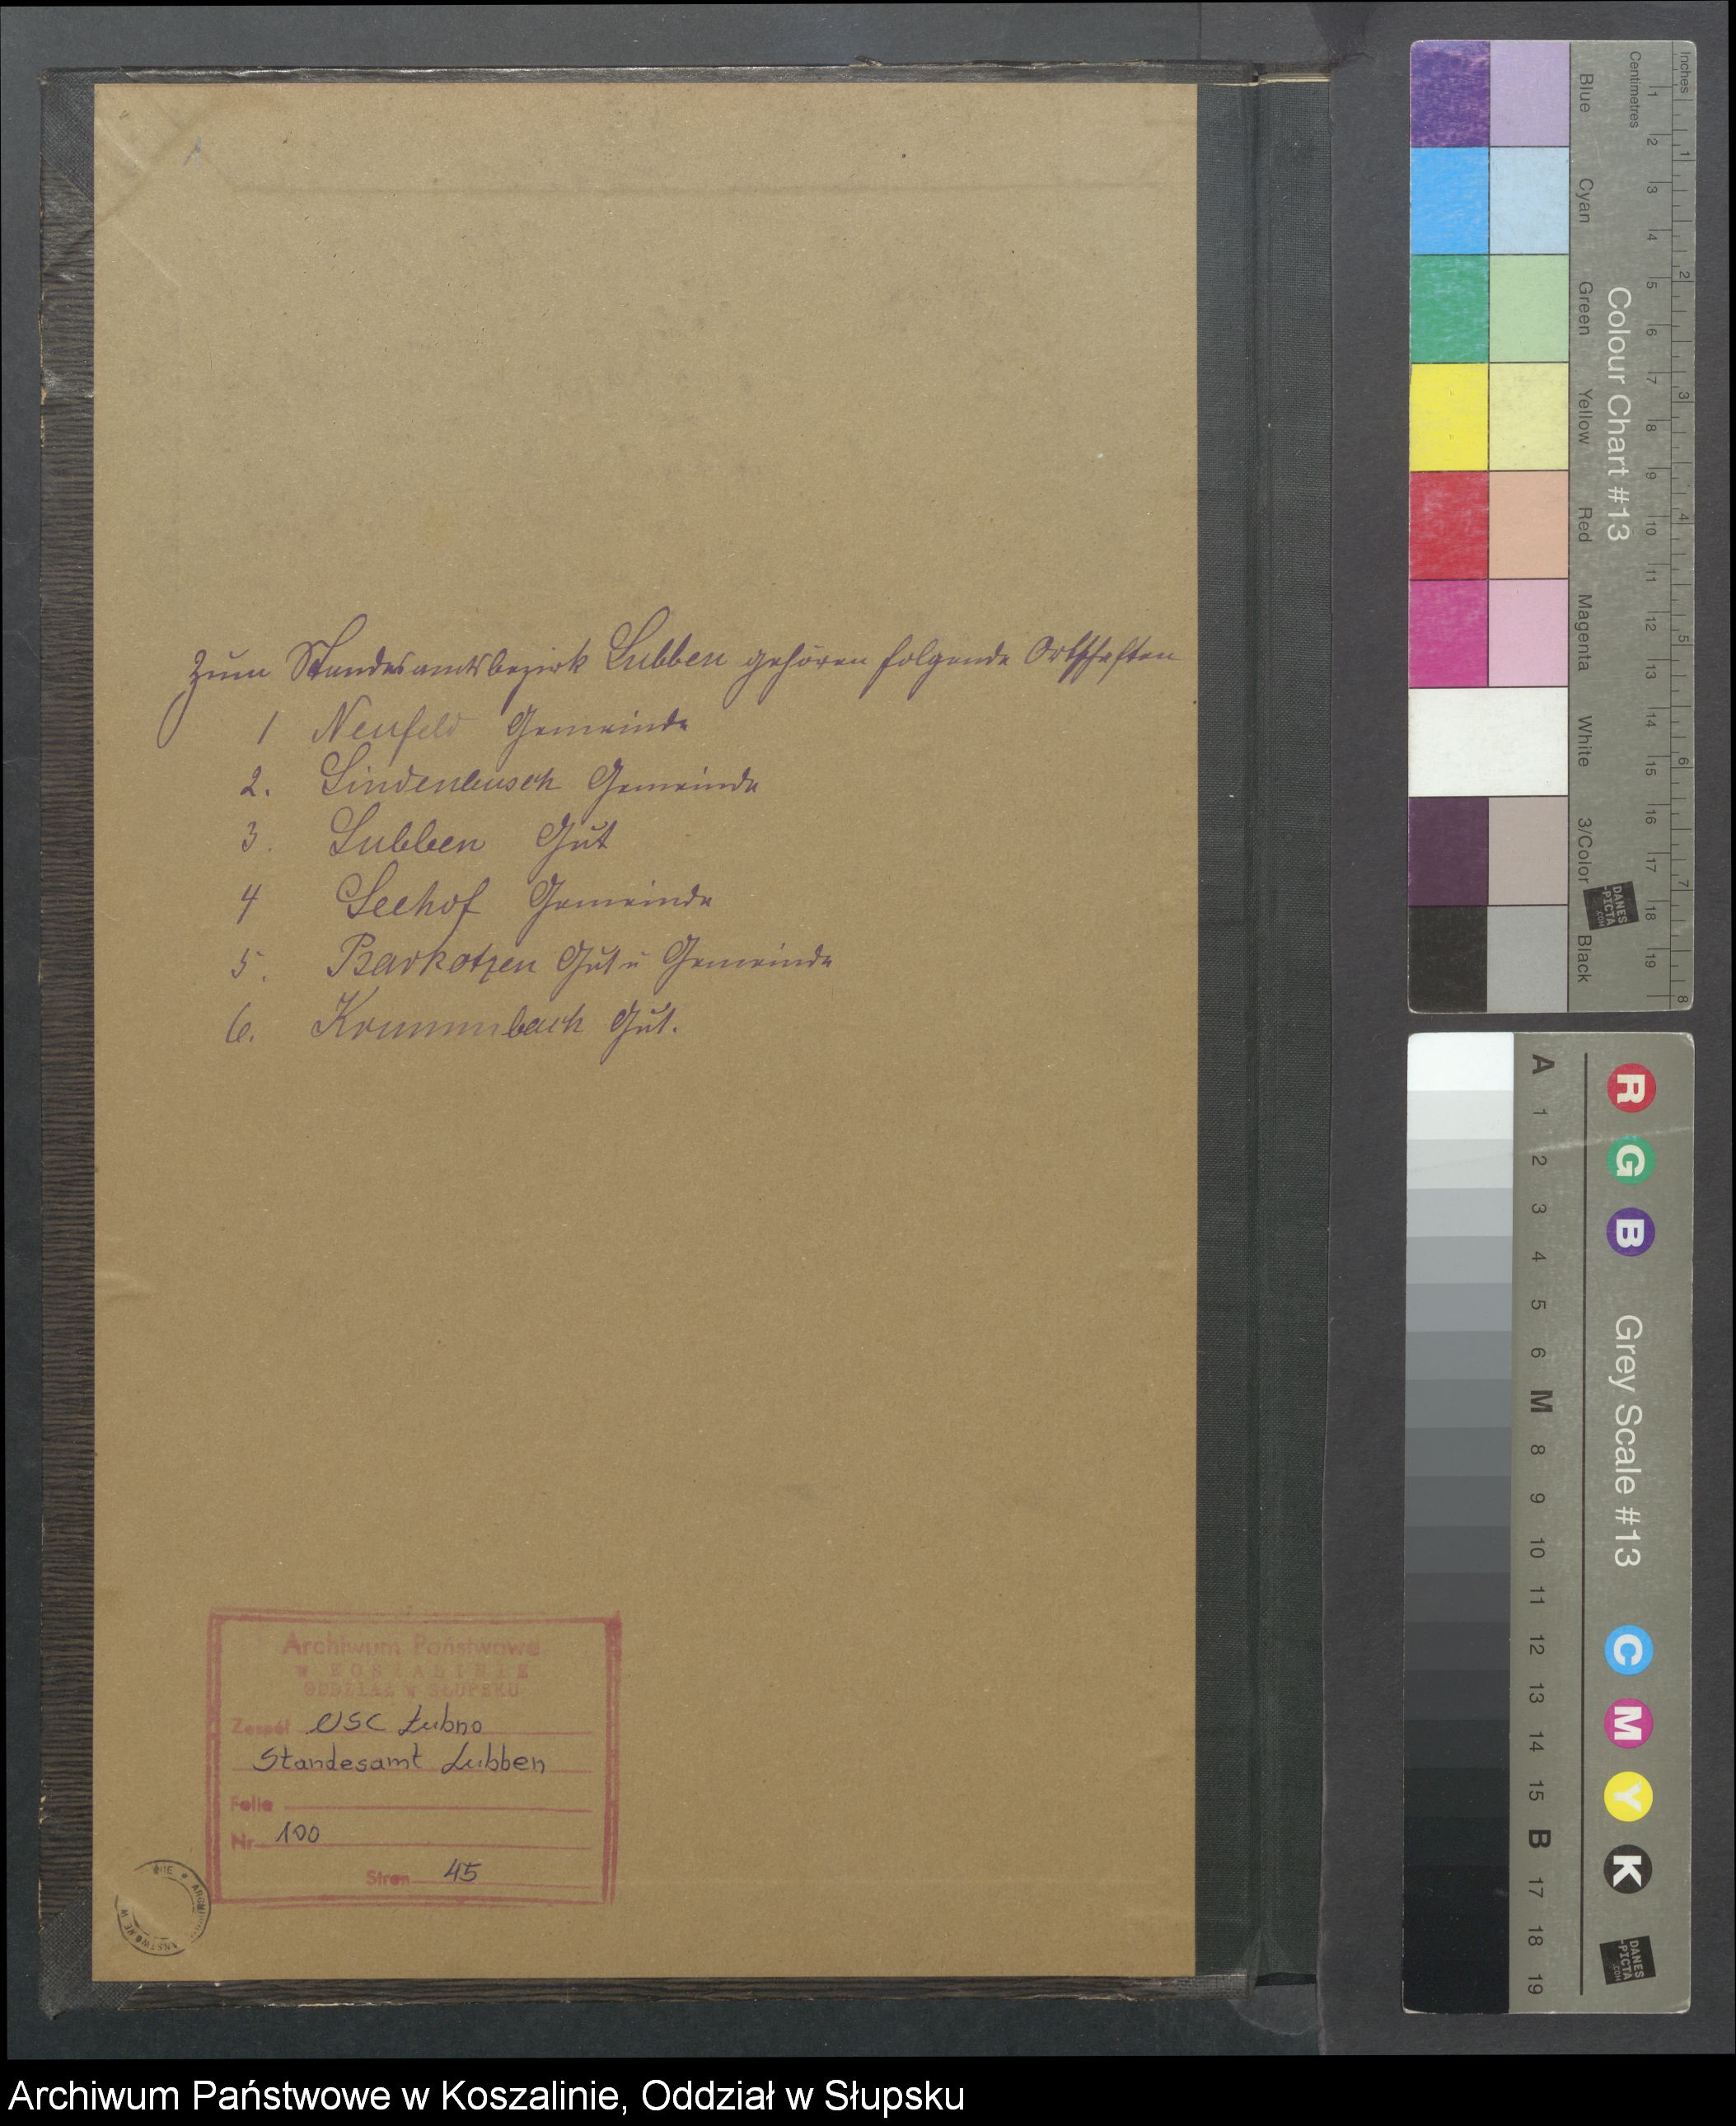 1
Zum Standesamtsbezirk Lubben gehören folgende Ortschaften
1 Neufeld Gemeinde
2. Lindenbusch Gemeinde
3. Lubben Gut
4 Seehof Gemeinde
5. Barkotzen Gut u Gemeinde
6. Krummbach Gut.
Archiwum Państwowe
w KOSZALINIE
ODDZIAŁ w SŁUPSKU
Zespół USC Łubno
Standesamt Lubben
Folia
Nr 100
Stron 45
Inches
Centimetres
1 2 3 4 5 6 7 8
1 2 3 4 5 6 7 8 9 10 11 12 13 14 15 16 17 18 19
Colour Chart #13
Blue Cyan Green Yellow Red Magenta White 3/Color Black
DANES
-PICTA
.COM
A 1 2 3 4 5 6 M 8 9 10 11 12 13 14 15 B 17 18 19
R G B Grey Scale #13 C M Y K
DANES
-PICTA
.COM
Archiwum Państwowe w Koszalinie, Oddział w Słupsku